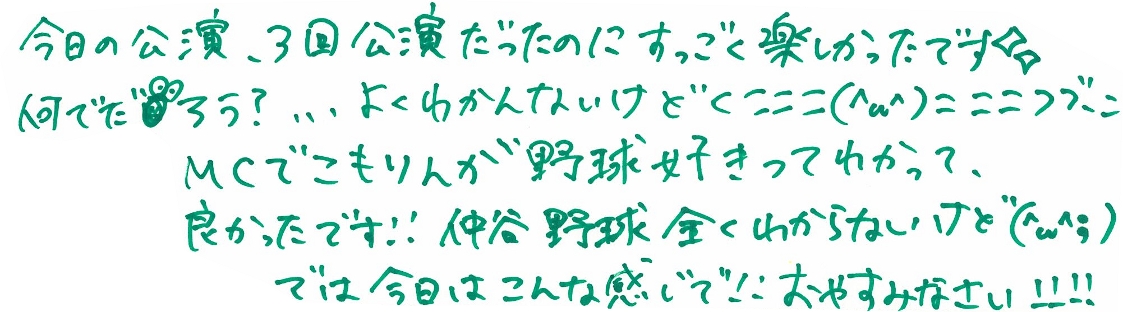 今日の公演、3回公演だったのにすっごく楽しかったです
何でだろう?...よくわかんないけどくニニニ(^ω^)ニニニつブーン
MCでこもりんが野球好きってわかって、
良かったです!!仲谷野球全くわからないけど(^ω^;)
では今日はこんな感じで!!おやすみなさい!!!!